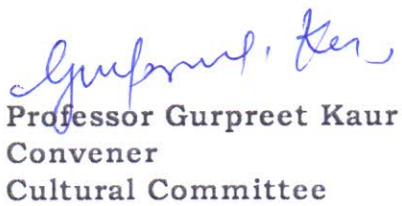 Gurpreet Kaur
Professor Gurpreet Kaur
Convener
Cultural Committee